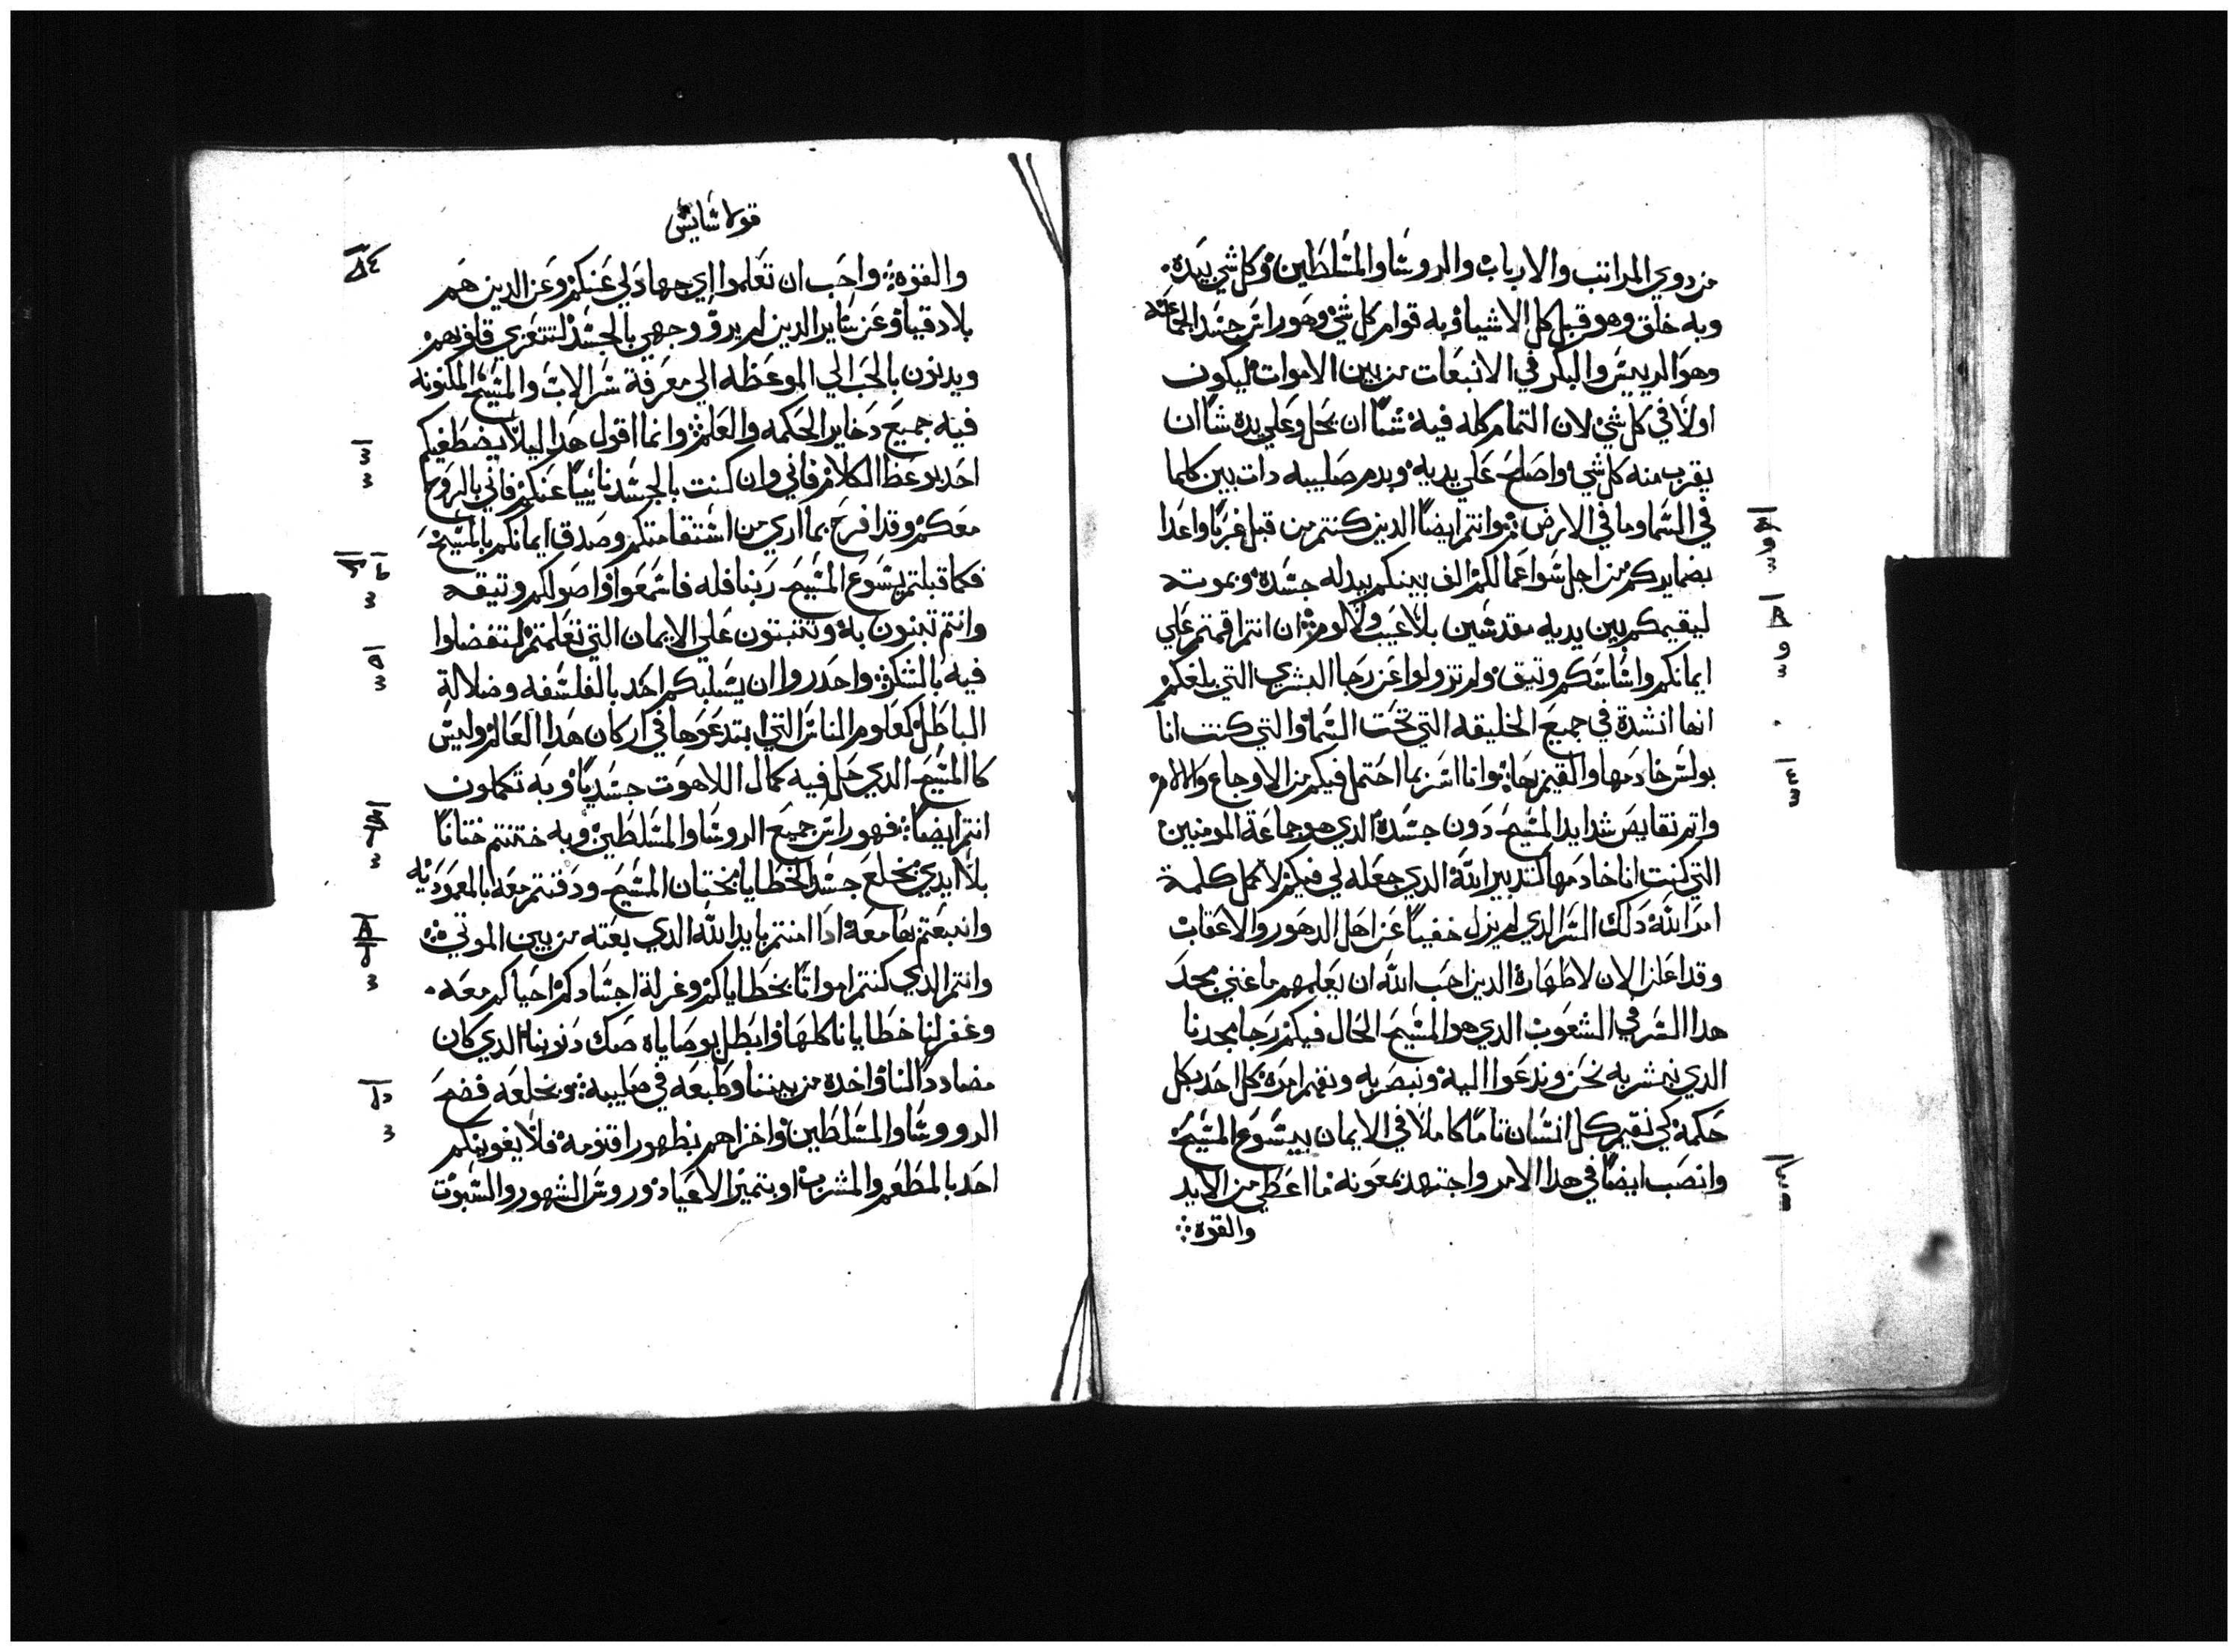 من دوي المراتب والارباب والروسا والمسلطين وكل شي بيده
وبه خلق وهو قبل كل الاشيا وبه قوام كل شي وهو راس جسد الجماعه
وهو الريس والبكر في الانبعات من بين الاموات ليكون
اولا في كل شي لان التمام كله فيه شا ان يحل وعلي يده شا ان
يقرب منه كل شي واصلح علي يديه وبدم صليبه دات بين كلما
في السما وما في الارض وانتم ايضا الدين كنتم من قبل غربا واعدا
بضمايركم من اجل سوا عمالكم الف بينكم ببدله جسده وبموته
ليقيمكم بين يديه مقدسين بلا عيب ولا لوم ان انتم اقمتم علي
ايمانكم واساسكم وتيق ولم تزولوا عن رجا البشري التي بلغكم
انها انشدة في جميع الخليقه التي تحت السما والتي كنت انا
بولس خادمها والقيم بها وانا اسر بما احتمل فيكم من الاوجاع والالام
واتم نقايص شدايد المسيح دون جسده الدي هو جماعة المومنين
التي كنت انا خادمها كتدبير الله الدي جعله لي فيكم لاكمل كلمة
امر الله دلك السر الدي لم يزل خفيا عن اهل الدهور والاعقاب
وقد اعلن الان لاطهاره الدين احب الله ان يعلمهم ما غني مجد
هدا السر في الشعوب الدي هو المسيح الحال فيكم رجا مجدنا
الدي نبشر به نحن وندعوا اليه ونبصر به ونفهم امره كل احد بكل
حكمة كي نقيم كل انسان تاما كاملا في الايمان بيسوع المسيح
وانصب ايضا في هدا الامر واجتهد بمعونة ما اعطي من الايد
والقوه
قولاسايس
والقوه واحب ان تعلموا اي جهاد لي عنكم وعن الدين هم
بلادقيا وعن ساير الدين لم يروا وجهي بالجسد لتتعزي قلوبهم
ويدنون بالحب الي الموعظه الي معرفة سر الاب والمسيح المكنونه
فيه جميع دخاير الحكمه والعلم وانما اقول هدا ليلا يضطغيكم
احد بوعظ الكلام فاني وان كنت بالجسد نائيا عنكم فاني بالروح
معكم وقد افرح بما اري من استقامتكم وصدق ايمانكم بالمسيح
فكما قبلتم يسوع المسيح ربنا فله فاسمعوا واصولكم وتيقه
وانتم تبنون به وتتبتون علي الايمان التي تعلمتم لتتفضلوا
فيه بالشكر واحدروا ان يسلبكم احد بالفلسفه وضلالة
الباطل كعلوم الناس التي ابتدعوها في اركان هدا العالم وليس
كالمسيح الدي حل فيه كمال اللاهوت جسديا وبه تكملون
انتم ايضا فهو راس جميع الروسا والمسلطين وبه ختنتم ختانا
بلا ايدي بخلع جسد الخطايا بختان المسيح ودفنتم معه بالمعموديه
وانبعتم بها معه ادا امنتم بايد الله الدي بعته من بين الموتي
وانتم الدي كنتم امواتا بخطاياكم وغرلة اجسادكم احياكم معه
وغفر لنا خطايانا كلها وابطل بوصاياه صك دنوبنا الدي كان
مضاددا لنا واخده من بيننا وطبعه في صليبه وبخلعه فضح
الرووسا والمسلطين واخزاهم بظهور اقنومه فلا يغوينكم
احد بالمطعم والمشرب او بتميز الاعياد وروس الشهور والسبوت